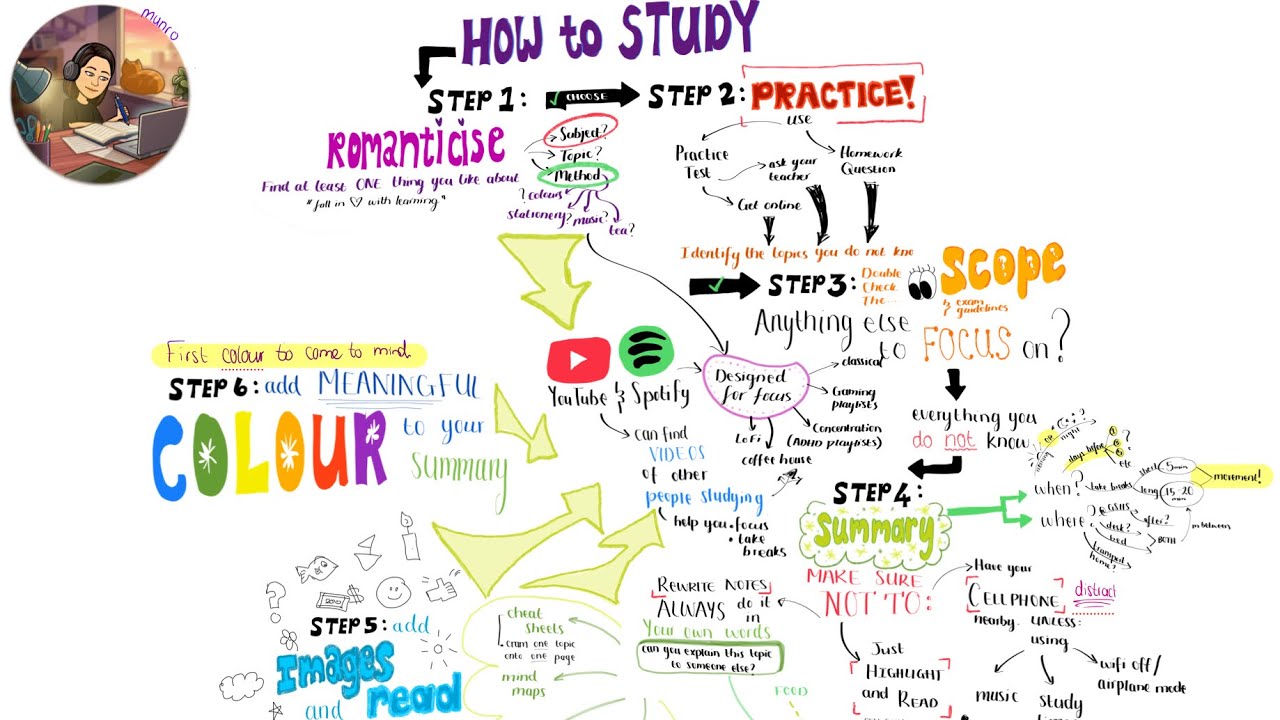 munro
HOW to STUDY
STEP 1:
CHOOSE
Romanticise
Find at least ONE thing you like about
"fall in ♡ with learning"
Subject?
Topic?
Method
? colours
stationery?
music?
tea?
STEP 2:
PRACTICE!
use
Practice
Test
ask your
teacher
Homework
Question
Get online
Identify the topics you do not kno
STEP 3:
Double
Check
The...
SCOPE
& exam
guidelines
Anything else
to FOCUS on?
everything you
do not know
STEP 4:
Summary
when?
night
days before
?
etc
take breaks
short
5min
long
15-20
min
movement!
where
@ GSHS
after?
desk?
bed
BOTH
in between
home?
MAKE SURE
NOT TO:
Have your
CELLPHONE
distract
nearby. UNLESS:
using
music
study
wifi off/
airplane mode
Just
HIGHLIGHT
and READ
REWRITE NOTES
ALWAYS do it
in
Your own words
can you explain this topic
to someone else?
FOOD
YouTube & Spotify
Designed
for focus
classical
Gaming
playlists
Concentration
(ADHD playlists)
LoFi
coffee house
can find
VIDEOS
of other
people studying
help you • focus
• take
breaks
cheat
sheets
cram one topic
onto one page
mind
maps
STEP 5: add
Images
and read
First colour to come to mind
STEP 6: add MEANINGFUL
COLOUR to your
summary